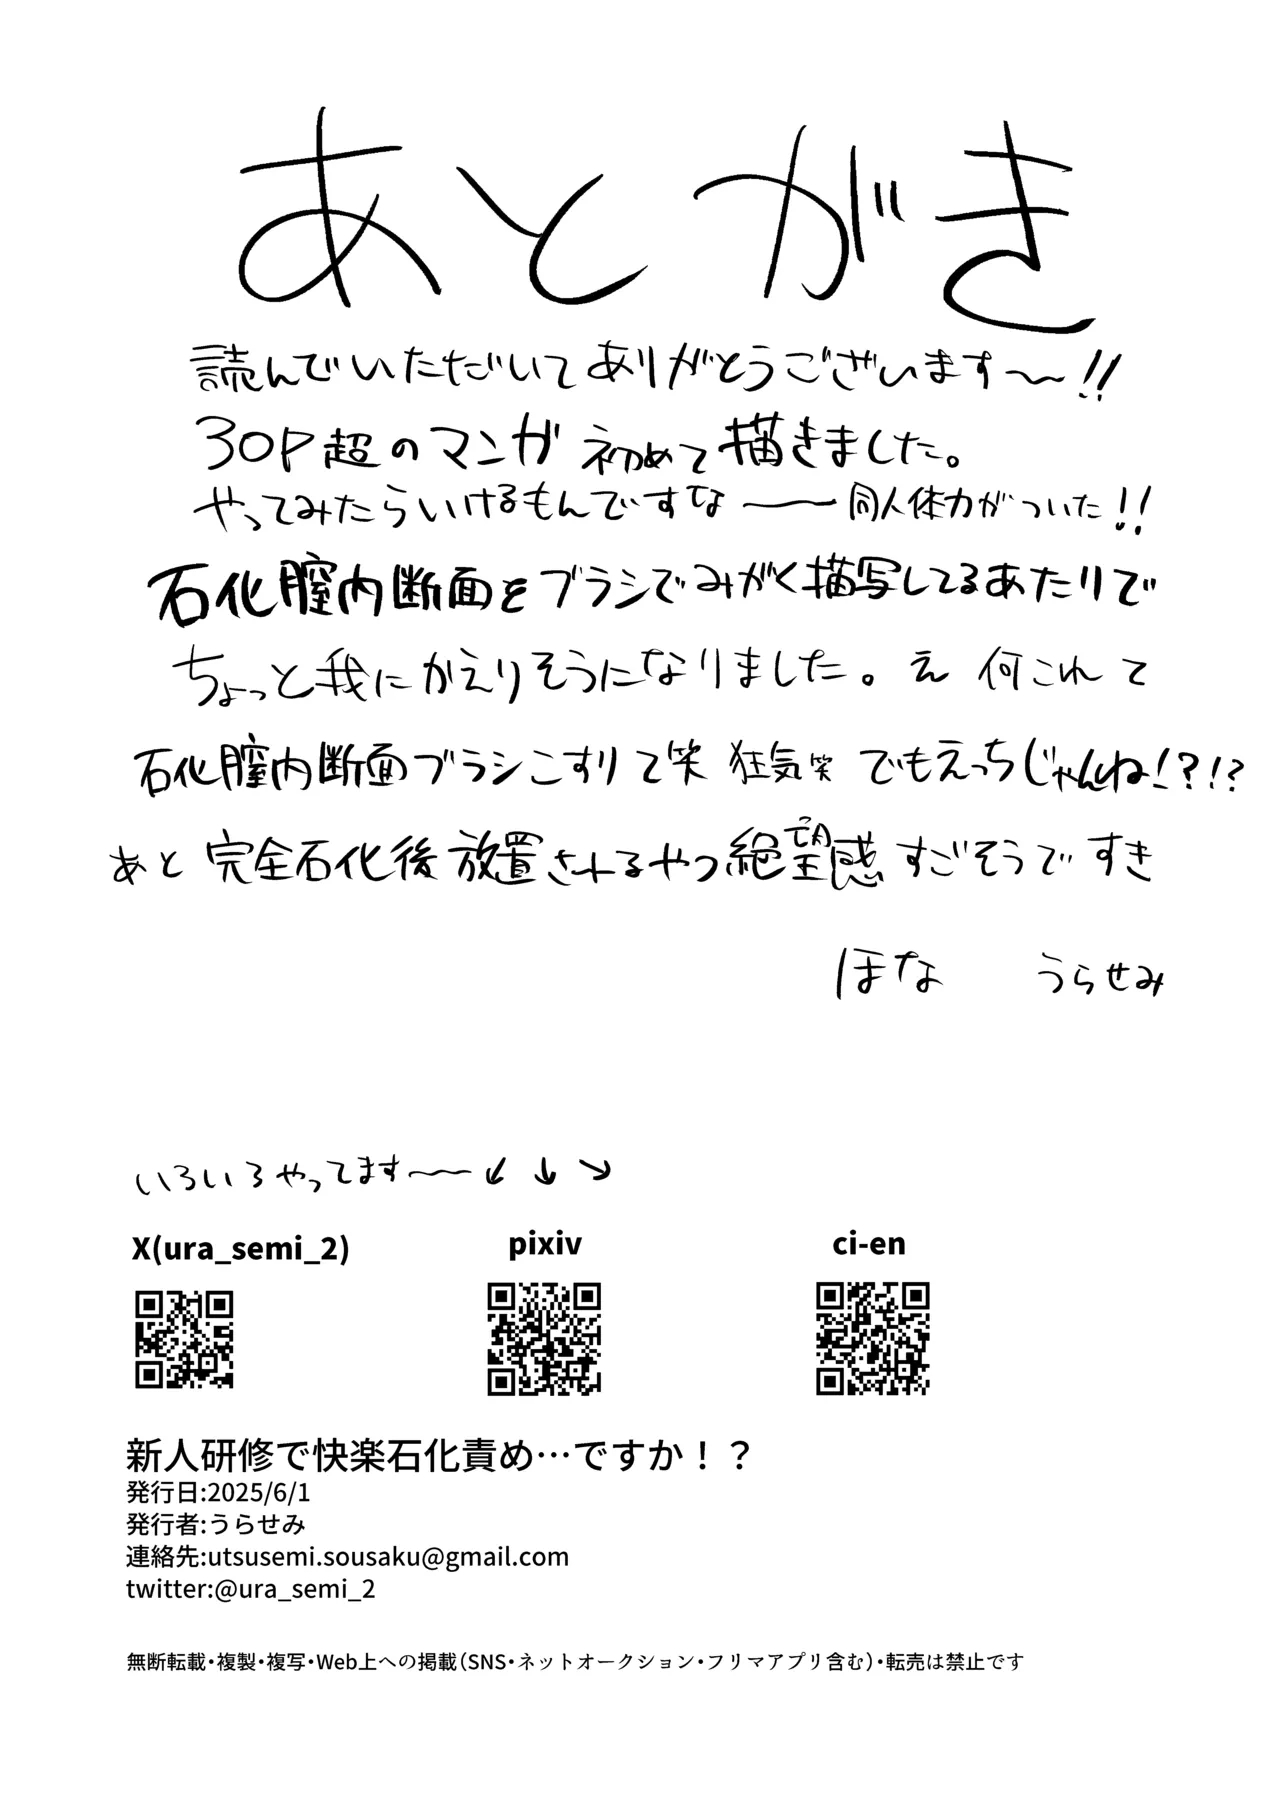 あとがき
読んでいただいてありがとうございます〜!!
30P超のマンガ 初めて描きました。
やってみたらいけるもんですな ── 同人体力がついた!!
石化膣内断面をブラシでみがく描写してるあたりで
ちょっと我にかえりそうになりました。え 何これ て
石化膣内断面ブラシこすりて笑 狂気笑 でもえっちじゃんね!?!?
あと 完全石化後 放置されるやつ絶望感 すごそうで すき
ほな うらせみ
いろいろやってます〜 ↙ ↓ ↘
X(ura_semi_2) pixiv ci-en
新人研修で快楽石化責め…ですか！？
発行日:2025/6/1
発行者:うらせみ
連絡先:utsusemi.sousaku@gmail.com
twitter:@ura_semi_2
無断転載・複製・複写・Web上への掲載(SNS・ネットオークション・フリマアプリ含む)・転売は禁止です